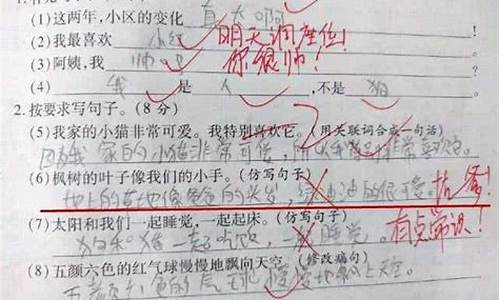 (1)这两年,小区的变化 真大啊
(2)我最喜欢 小红 明天调座位!
(3)阿姨,我 帅吧 你很帅!
(4) 我 是 人 ,不是 狗
2.按要求写句子。(8 分)
(5)我家的小猫非常可爱。我特别喜欢它。(用关联词合成一句话)
因为我家的小猫非常可爱,所以我非常喜欢它。
(6)枫树的叶子像我们的小手。(仿写句子)
地上的草地像爸爸的头发,绿油油的很可爱。抗议!
(7)太阳和我们一起睡觉,一起起床。(仿写句子)
狗和猪一起吃饭,一起睡觉。 有点常识!
(8)五颜六色的红气球慢慢地飘向天空。(修改病句)
五颜六色的气球慢慢地飘上天空。